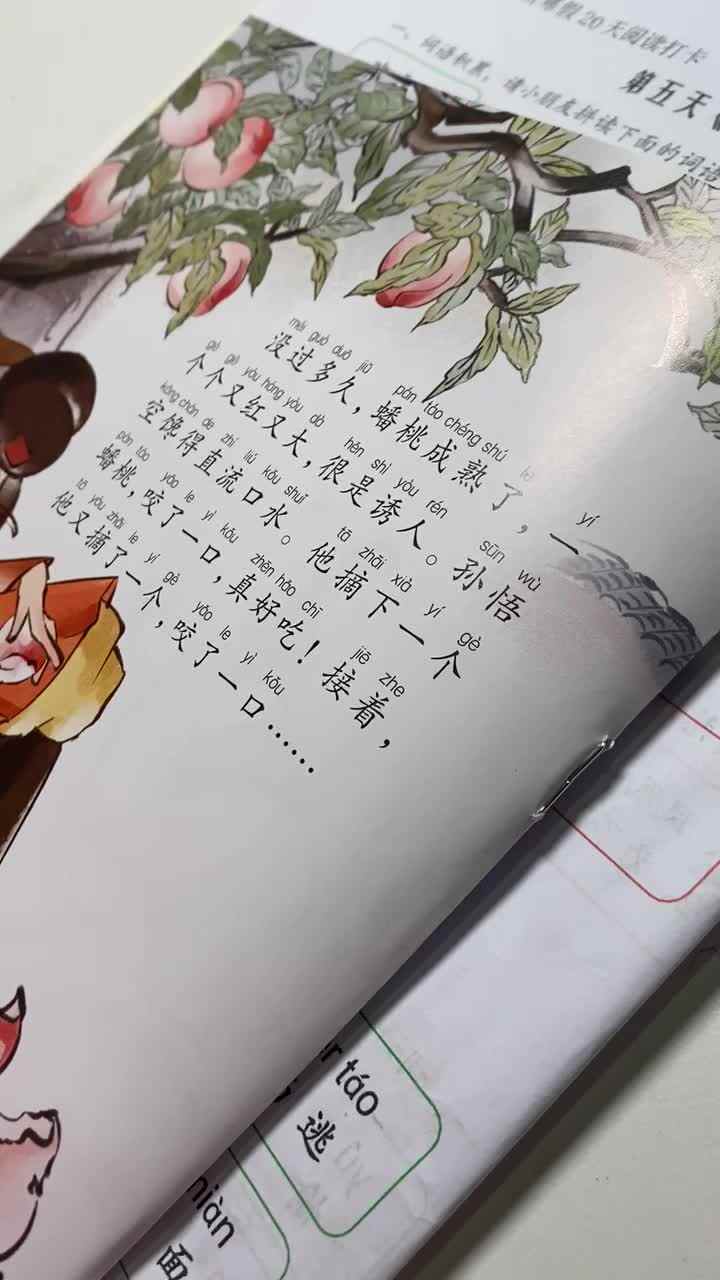 寒假20天阅读打卡
第五天
一、词语积累，请小朋友拼读下面的词语
méi guò duō jiǔ pán táo chéng shú le yí
没过多久，蟠桃成熟了，一
gè gè yòu hóng yòu dà hěn shì yòu rén sūn wù
个个又红又大，很是诱人。孙悟
kōng chán de zhí liú kǒu shuǐ tā zhāi xià yí gè
空馋得直流口水。他摘下一个
pán táo yǎo le yì kǒu zhēn hǎo chī jiē zhe
蟠桃，咬了一口，真好吃！接着，
tā yòu zhāi le yí gè yǎo le yì kǒu
他又摘了一个，咬了一口……
táo
逃
miàn
面